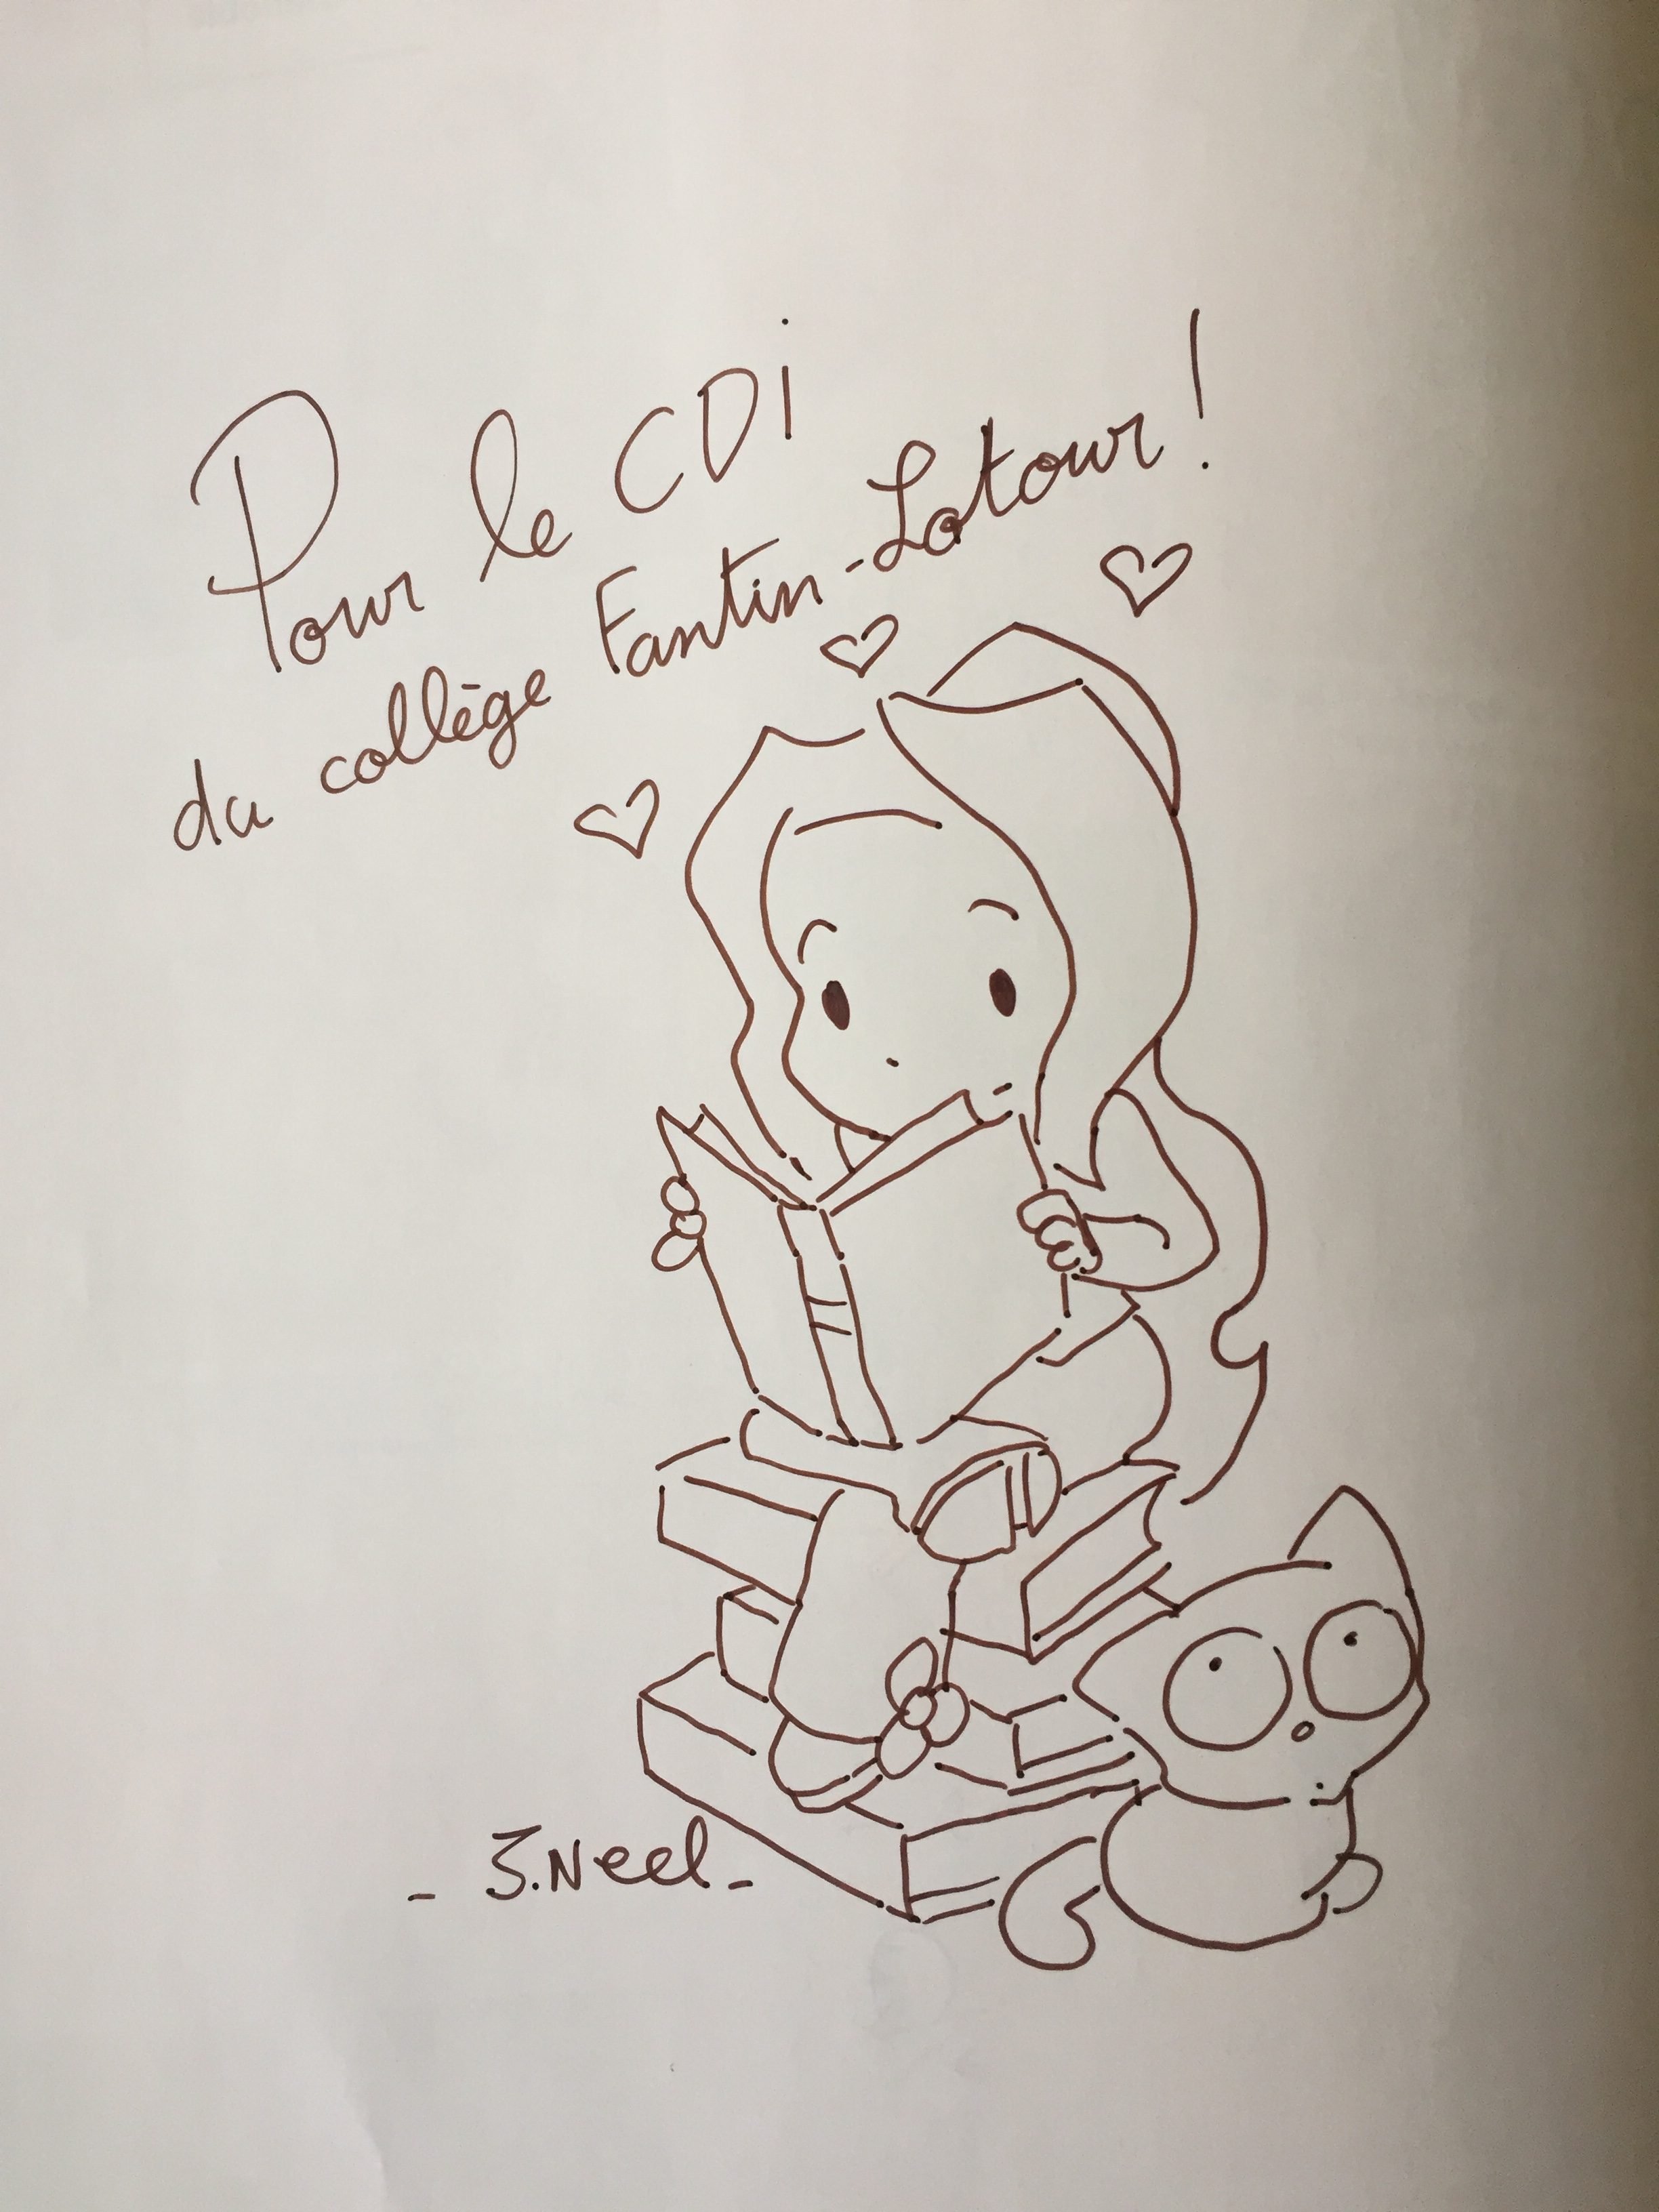 Pour le CDI
du collège Fantin-Latour !
- J.Neel -